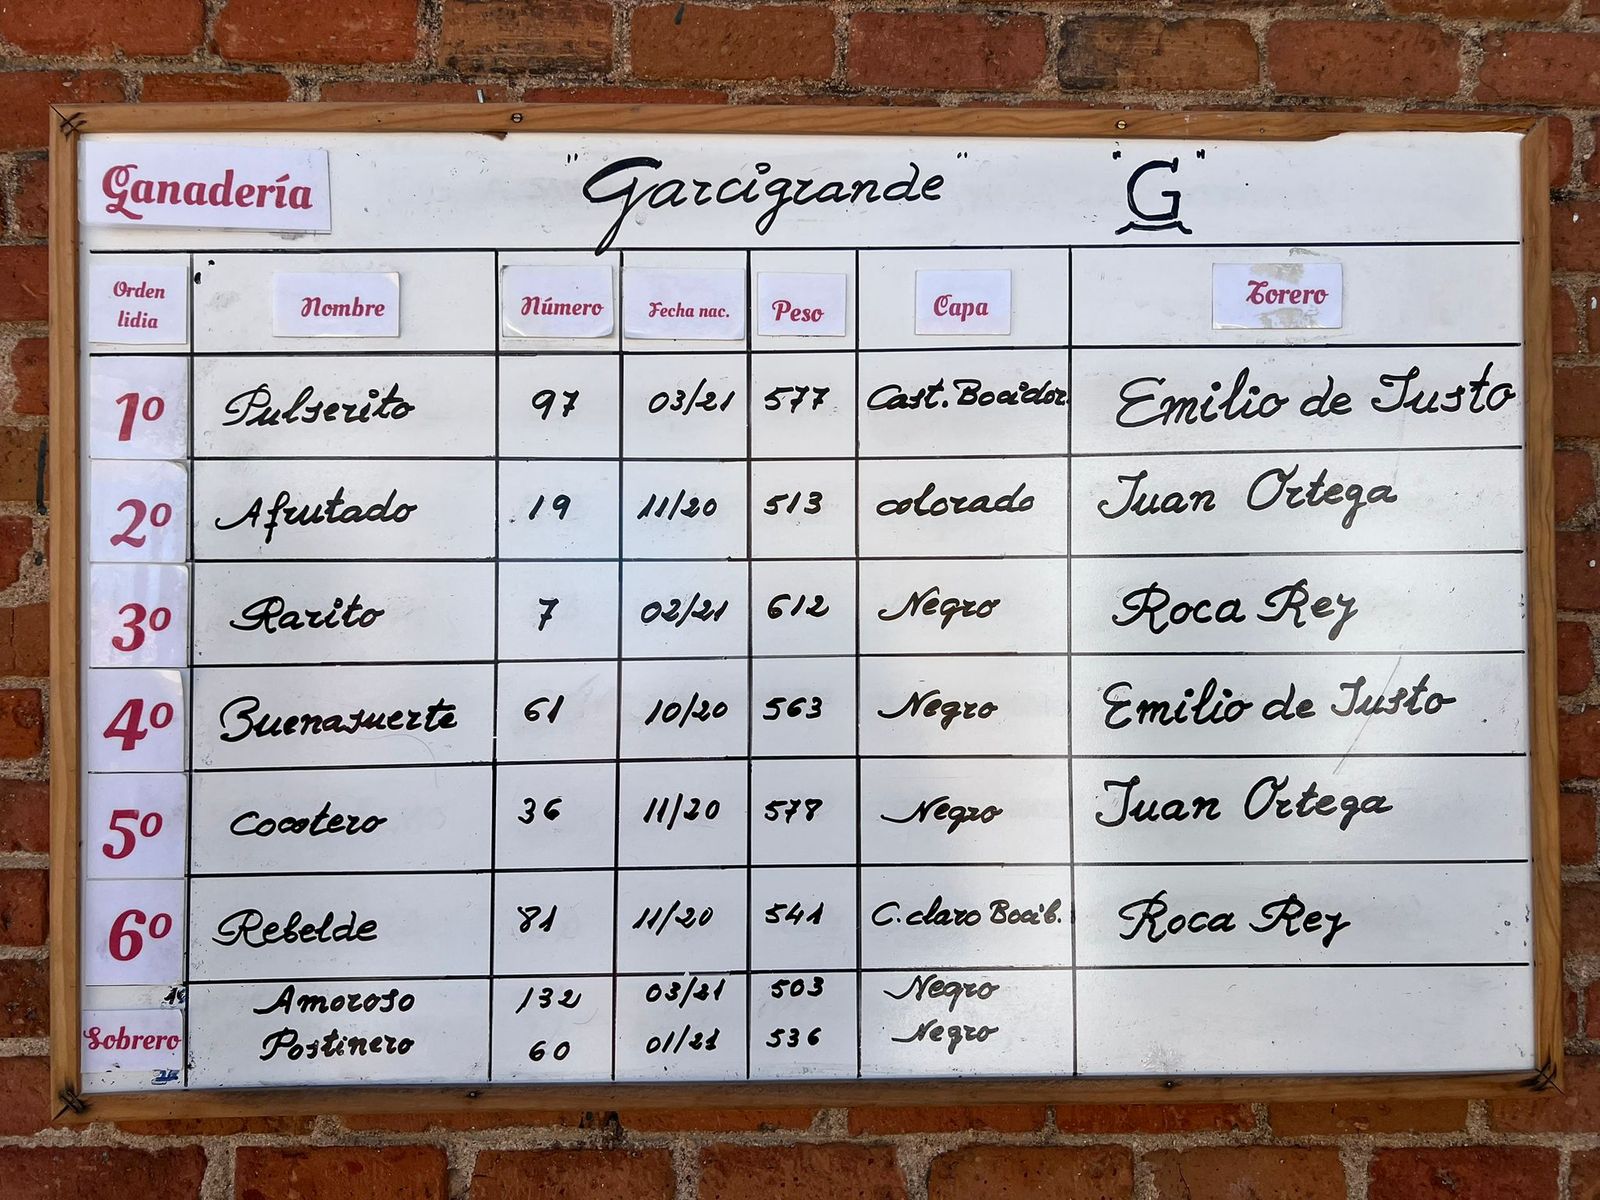 Ganadería "Garcigrande" "G"
Orden lidia Nombre Número Fecha nac. Peso Capa Torero
1º Pulserito 97 03/21 577 Cast. Bocidor. Emilio de Justo
2º Afrutado 19 11/20 513 colorado Juan Ortega
3º Rarito 7 02/21 612 Negro Roca Rey
4º Buenasuerte 61 10/20 563 Negro Emilio de Justo
5º Cocotero 36 11/20 578 Negro Juan Ortega
6º Rebelde 81 11/20 541 C. claro Bocib. Roca Rey
1º Amoroso 132 03/21 503 Negro
Sobrero
Postinero 60 01/21 536 Negro